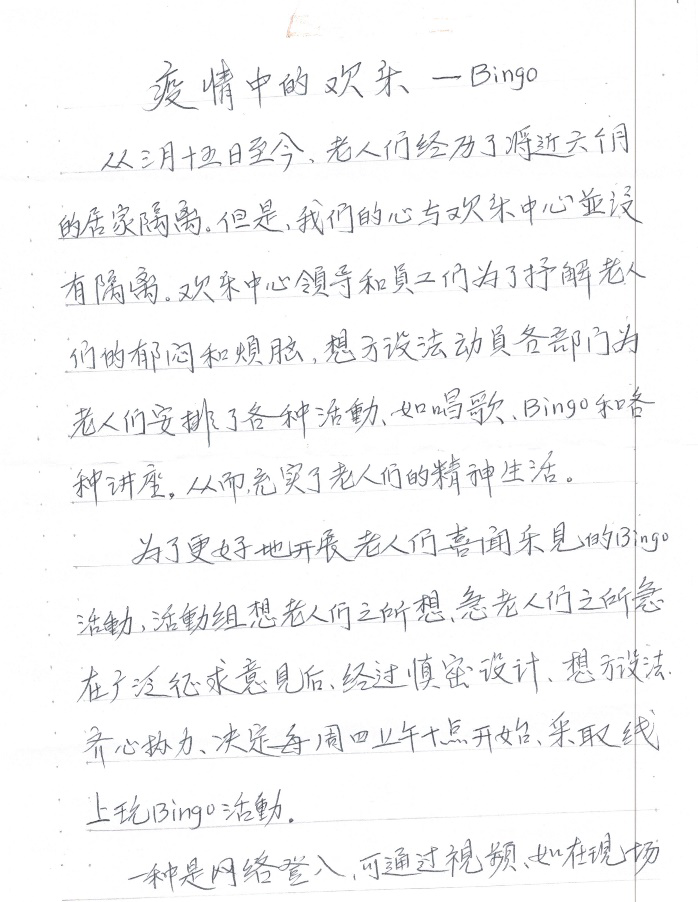 疫情中的欢乐 — Bingo
从三月十五日至今、老人们经历了将近六个月
的居家隔离。但是、我们的心与欢乐中心並没
有隔离。欢乐中心領导和員工们为了抒解老人
们的郁闷和烦脑,想方设法动員各部门为
老人们安排了各种活動、如唱歌、Bingo和各
种讲座。从而充实了老人们的精神生活。
为了更好地开展老人们喜闻乐见的Bingo
活動,活動组想老人们之所想、急老人们之所急
在广泛征求意见后、经过慎密设计、想方设法
齐心协力、决定每周四上午十点开始、采取线
上玩Bingo活動。
一种是网络登入,可通过視频、如在現场